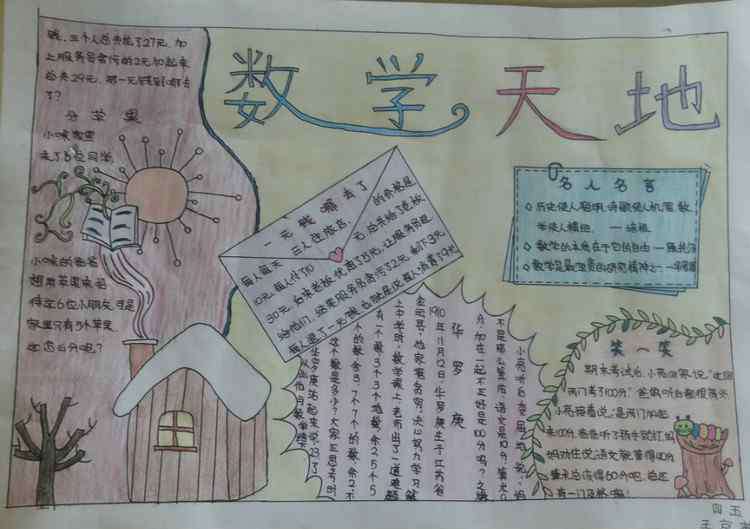 数学天地
晓，三个人总共花了27元，加
上服务员贪污的2元加起来
总共29元。那一元钱到哪去
了？
分苹果
小咪家里
来了5位同学
小咪的爸爸
想用苹果来招
待这6位小朋友，可是
家里只有5个苹果
怎么分呢？
一元钱哪去了
三人住旅店
每人每天
的价格是
10元，每人付了10
元，总共给了老板
30元，后来老板优惠了5元，让服务员退
给他们，结果服务员贪污2元，剩下3元
每人退了一元钱，也就是说每人消费了9元
名人名言
历史使人聪明，诗歌使人机智，数
学使人精细。——培根
数学的本质在于它的自由
华罗庚
1910年11月12日，华罗庚生于江苏省
金坛县，他家境贫穷，决心努力学习
上中学时，数学课上，老师出了一道难题
有一个数，3个3个地数，余2，5个5
个的数余3，7个7个的数余2，
这个数是多少？大家正思考时
华罗庚站起来说，23
笑一笑
期末考试后，小亮回家说
两门考了100分，爸爸听后都很高兴
小亮接着说，是两门加起
来100分
妈劝住说，语文就算得40分
数学总该得60分吧，总还
有一门及格嘛！
小亮听后委屈地说，妈
不是那么算的，语文是10分，数学
分，加在一起不正好是100分吗？
四五